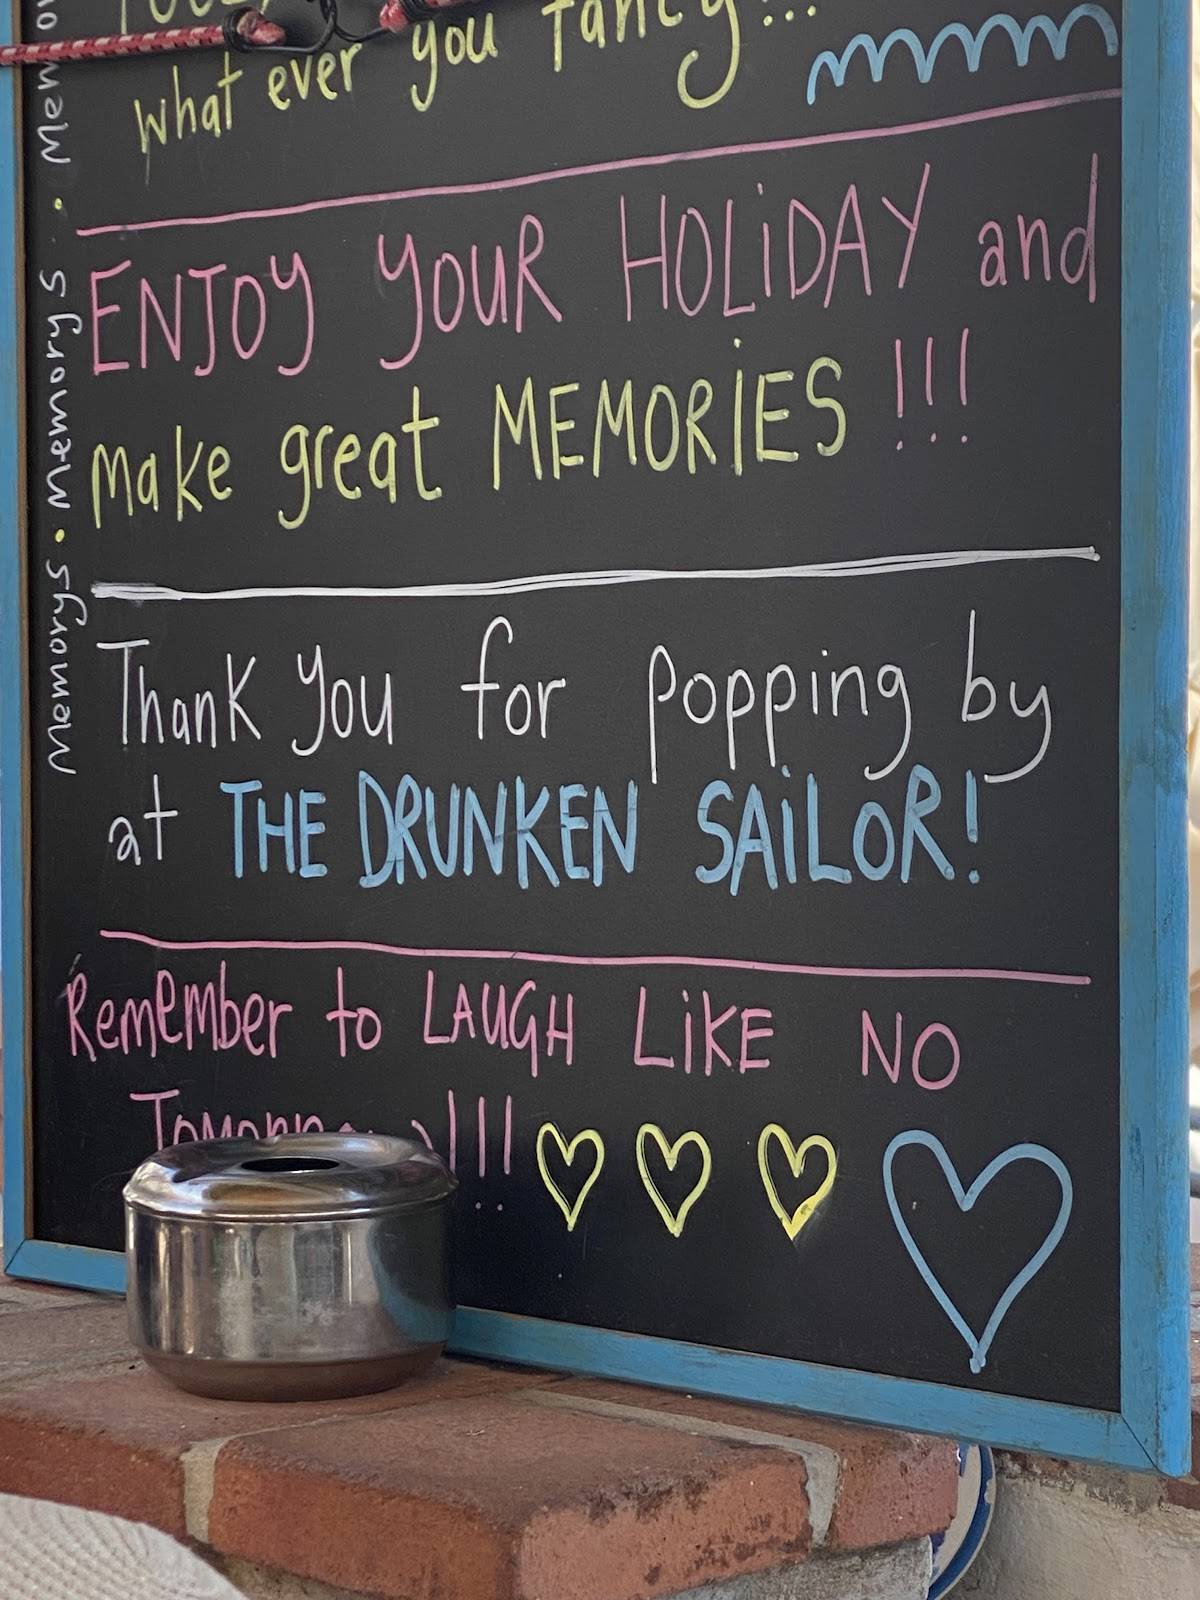 what ever you fancy...
ENJOY YOUR HOLiDAY and
make great MEMORiES !!!
Thank You for popping by
at THE DRUNKEN SAiLOR!
Remember to LAUGH LiKE NO
!!!
Memorys • Memorys •